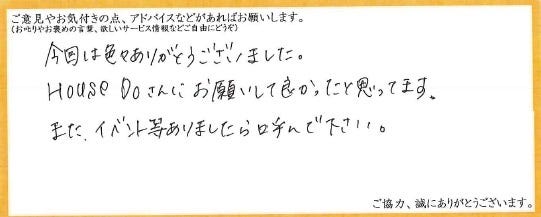 ご意見やお気付きの点、アドバイスなどがあればお願いします。
(お叱りやお褒めの言葉、欲しいサービス情報などご自由にどうぞ)
今回は色々ありがとうございました。
House Doさんにお願いして良かったと思ってます。
また、イベント等ありましたら呼んで下さい。
ご協力、誠にありがとうございます。